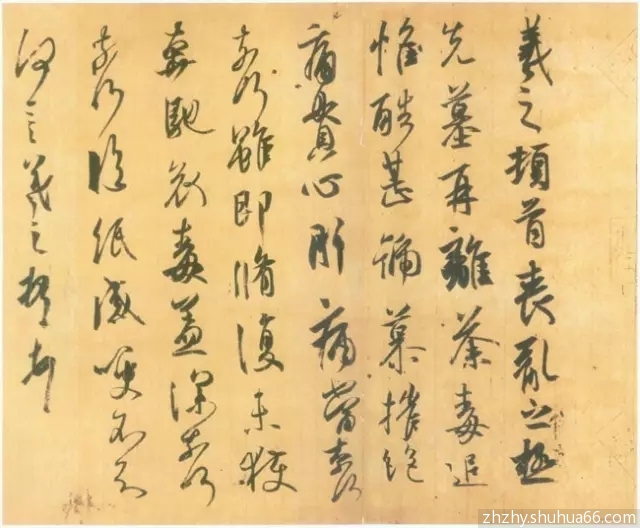 羲之頓首喪亂之極
先墓再離荼毒追
惟酷甚號慕摧絕
痛貫心肝痛當奈何
奈何雖即脩復未獲
奔馳哀毒益深奈何
奈何臨紙感哽不知
何言羲之頓首頓首
zhzhyshuhua66.com